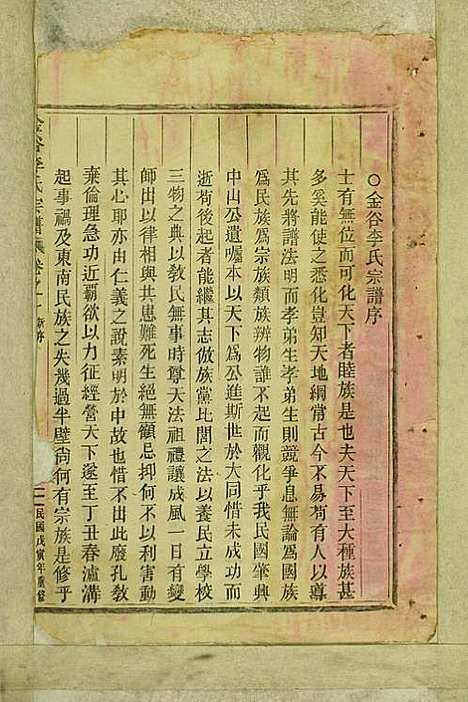 ○金谷李氏宗譜序
士有無位而可化天下者睦族是也夫天下至大種族甚
多奚能使之悉化豈知天地綱常古今不易苟有人以導
其先將譜法明而孝弟生孝弟生則競爭息無論爲國族
爲民族爲宗族類族辨物誰不起而觀化乎我民國肇興
中山公遺囑本以天下爲公進斯世於大同惜未成功而
逝苟後起者能繼其志倣族黨比閭之法以養民立學校
三物之典以敎民無事時尊天法祖禮讓成風一日有變
師出以律相與共患難死生絕無顧忌抑何不以利害動
其心耶亦由仁義之說素明於中故也惜不出此廢孔敎
棄倫理急功近覇欲以力征經營天下遂至丁丑春瀘溝
起事禍及東南民族之失幾過半壁尙何有宗族是修乎
金谷李氏宗譜 卷之一 新序
一 民國戊寅年重修